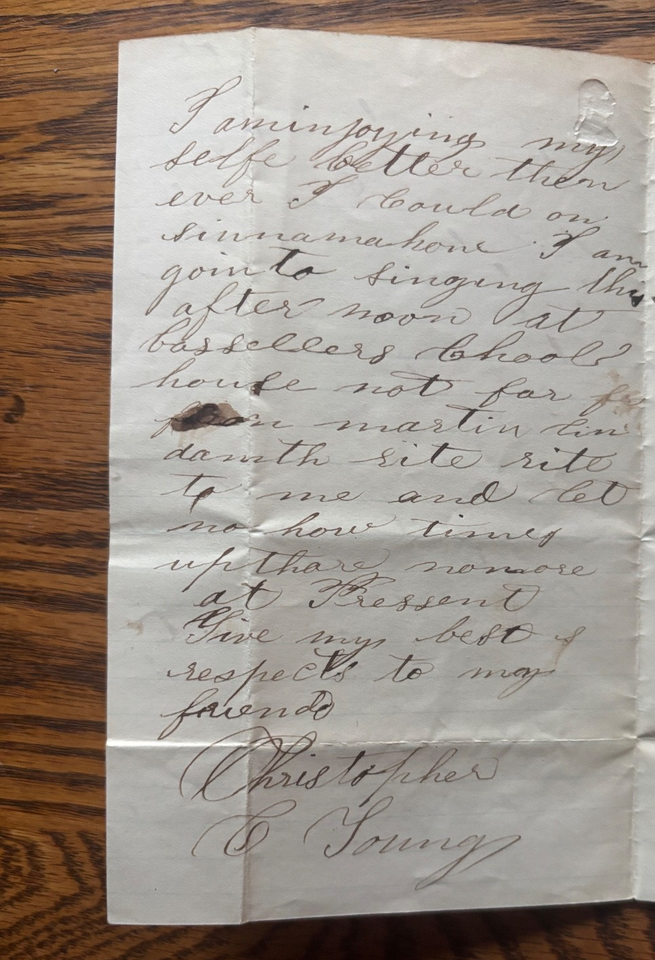 I am injoying my
selfe better then
ever I Could on
sinnamahone I am
goin to singing this
after noon at
bassellers Chool
house not far fr
from martin Lin
damth rite rite
to me and let
no how times
up thare nomore
at Pressent
Give my best s
respects to my
friends
Christopher
C Young